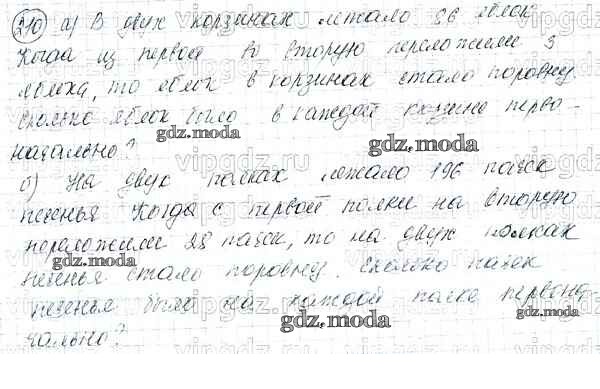 210 а) В двух корзинах лежало 86 яблок
Когда из первой во вторую переложили 3
яблока, то яблок в корзинах стало поровну.
Сколько яблок было в каждой корзине перво-
начально?
б) На двух полках лежало 196 пачек
печенья Когда с первой полки на вторую
переложили 28 пачек, то на двух полках
печенья стало поровну. Сколько пачек
печенья было на каждой полке первона
чально?
gdz.moda
gdz.moda
gdz.moda
gdz.moda
gdz.moda
vipgdz